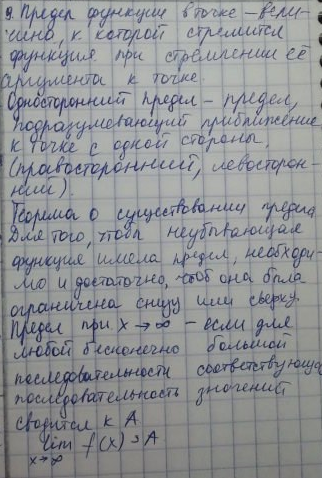 9. Предел функции в точке – вели-
чина, к которой стремится
функция при стремлении её
аргумента к точке.
Односторонний предел – предел,
подразумевающий приближение
к точке с одной стороны.
(правосторонний, левосторон-
ний).
Теорема о существовании предела
Для того, чтобы неубывающая
функция имела предел, необходи-
мо и достаточно, чтоб она была
ограничена снизу или сверху.
Предел при x → ∞ – если для
любой бесконечно большой
последовательности соответствующа
последовательность значений
сводится к A
lim f(x) = A
x→∞